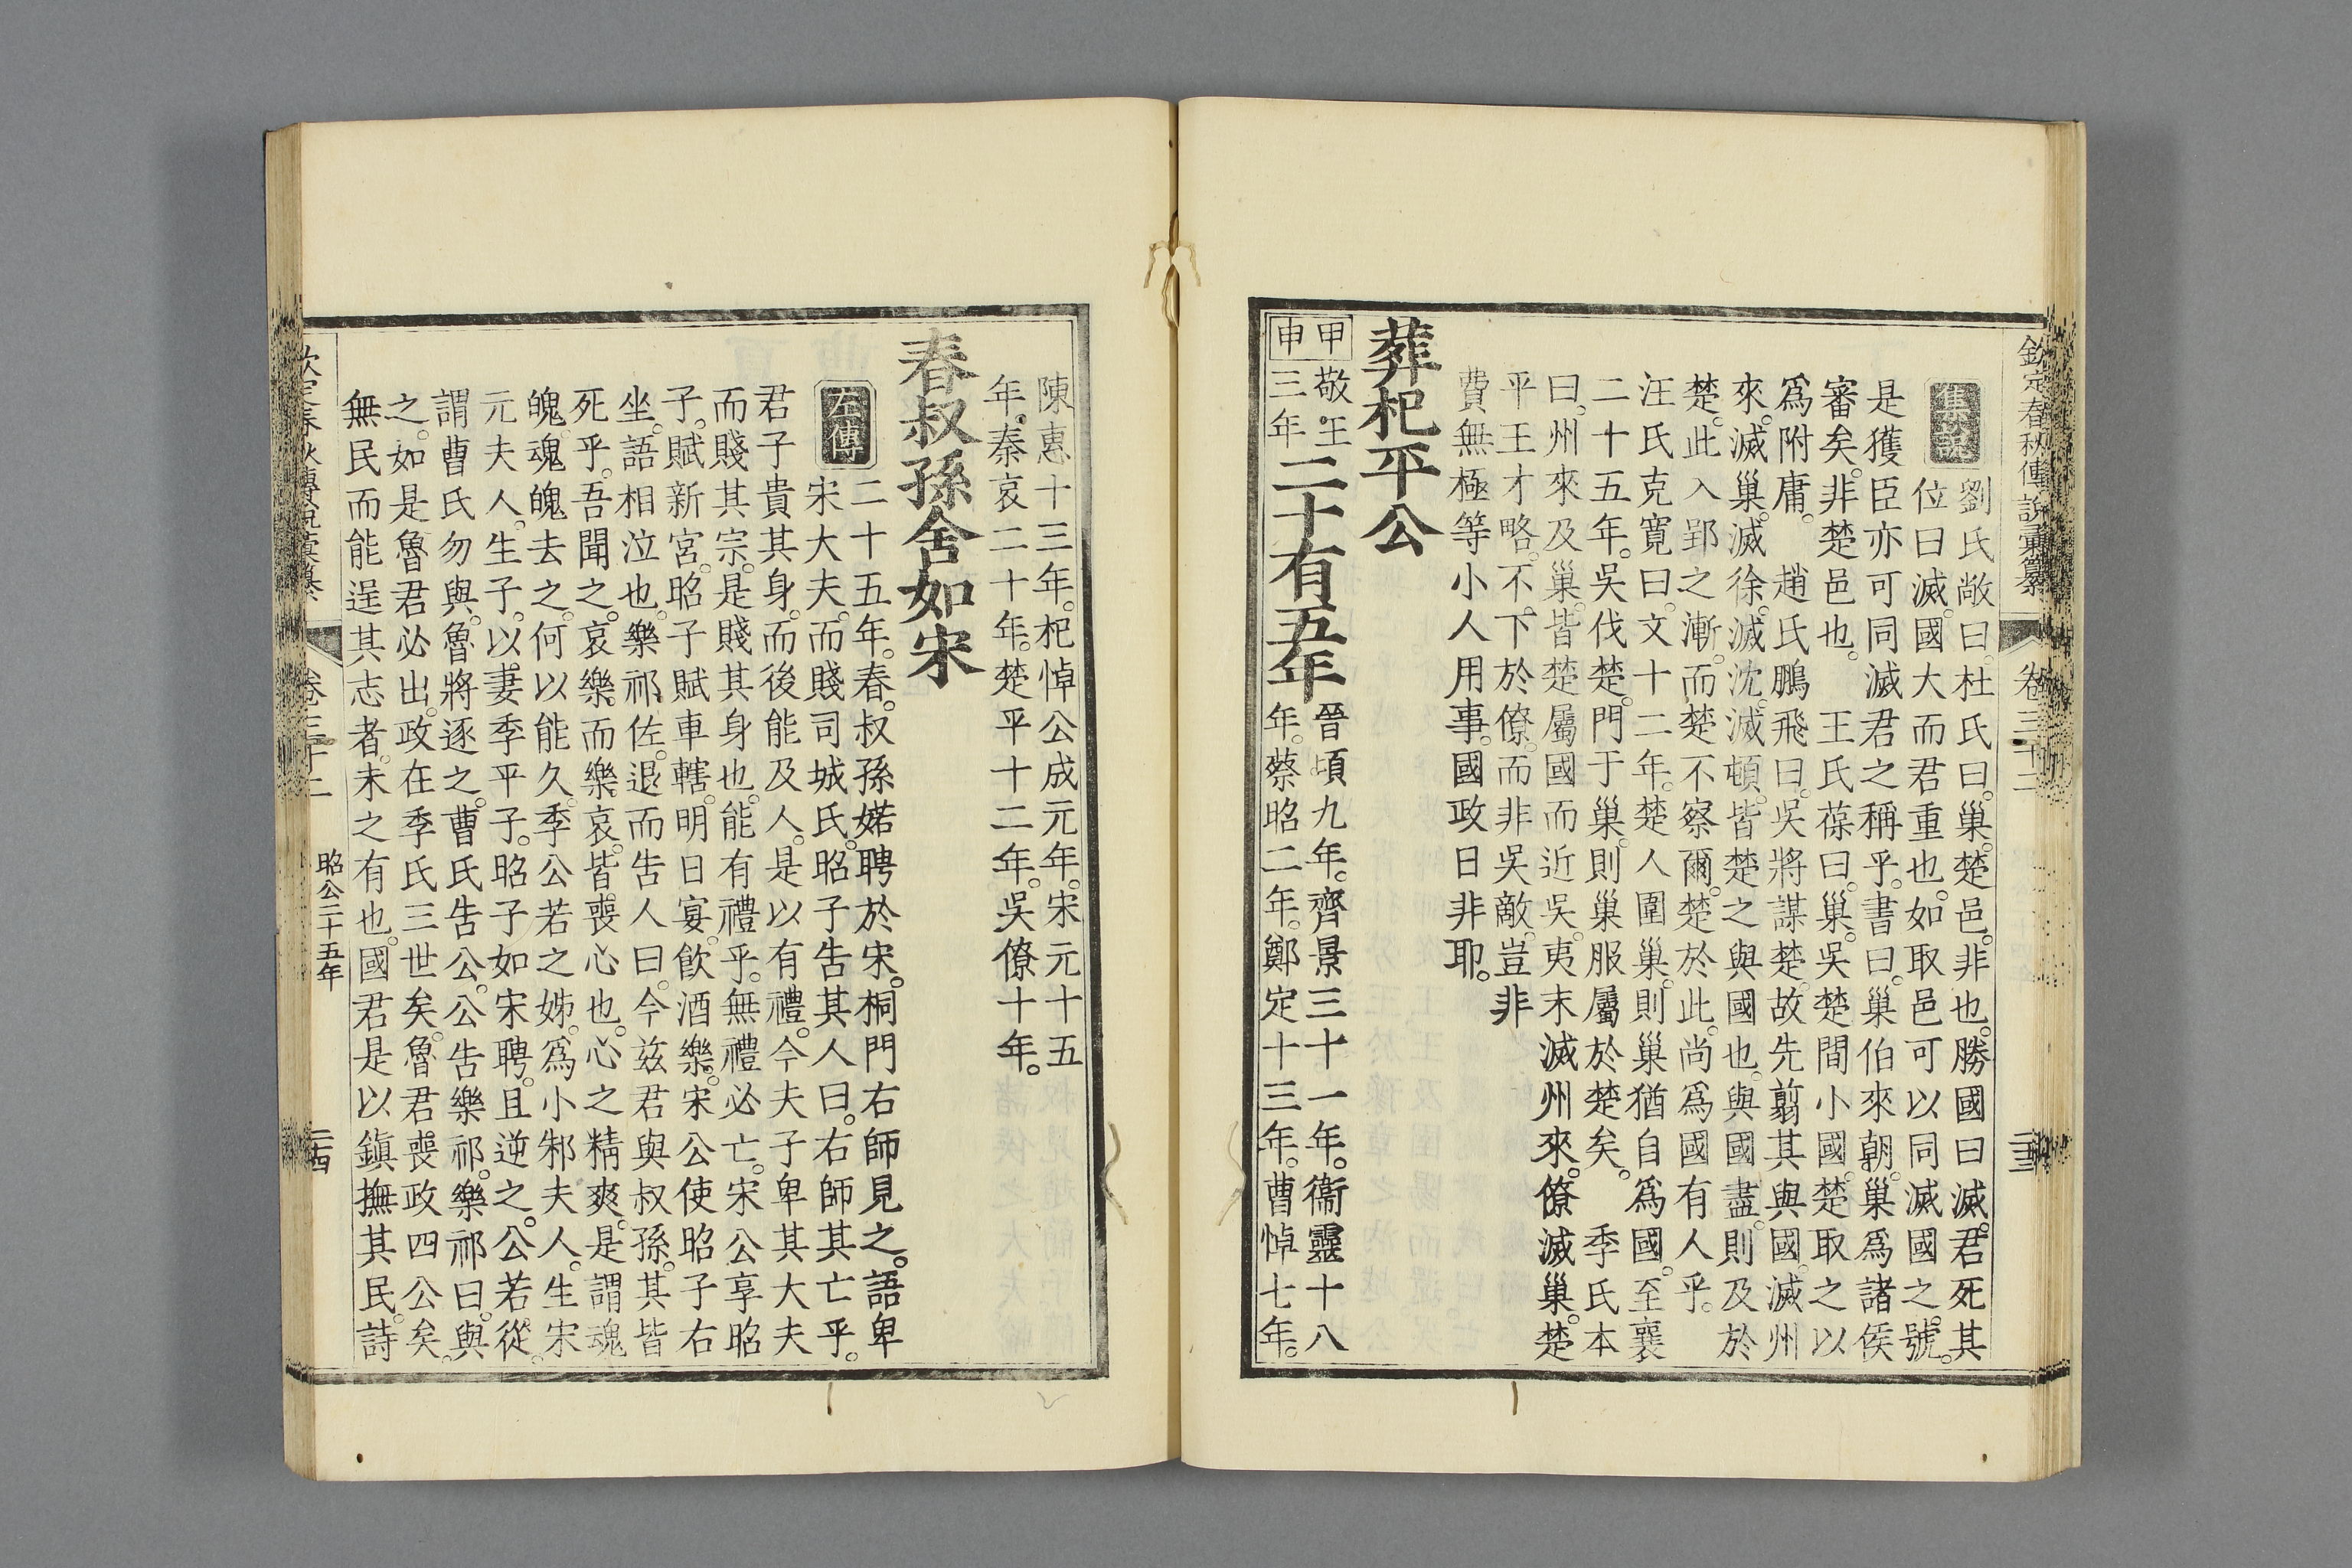 欽定春秋傳說彙纂 卷三十二
集說
劉氏敞曰。杜氏曰。巢。楚邑。非也。勝國曰滅。君死其
位曰滅。國大而君重也。如取邑可以同滅國之號。
是獲臣亦可同滅君之稱乎。書曰。巢伯來朝。巢爲諸侯
審矣。非楚邑也。 王氏葆曰。巢。吳楚間小國。楚取之以
爲附庸。 趙氏鵬飛曰。吳將謀楚。故先翦其與國。滅州
來。滅巢。滅徐。滅沈。滅頓。皆楚之與國也。與國盡。則及於
楚。此入郢之漸。而楚不察爾。楚於此。尚爲國有人乎。
汪氏克寬曰。文十二年。楚人圍巢。則巢猶自爲國。至襄
二十五年。吳伐楚。門于巢。則巢服屬於楚矣。 季氏本
曰。州來及巢。皆楚屬國而近吳。夷末滅州來。僚滅巢。楚
平王才略。不下於僚。而非吳敵。豈非
費無極等小人用事。國政日非耶。
葬杞平公
甲申 敬王三年 二十有五年 晉頃九年。齊景三十一年。衞靈十八
年。蔡昭二年。鄭定十三年。曹悼七年。
陳惠十三年。杞悼公成元年。宋元十五
年。秦哀二十年。楚平十二年。吳僚十年。
春叔孫舍如宋
左傳
二十五年。春。叔孫婼聘於宋。桐門右師見之。語卑
宋大夫。而賤司城氏。昭子告其人曰。右師其亡乎。
君子貴其身。而後能及人。是以有禮。今夫子卑其大夫
而賤其宗。是賤其身也。能有禮乎。無禮必亡。宋公享昭
子。賦新宮。昭子賦車轄。明日宴。飲酒樂。宋公使昭子右
坐。語相泣也。樂祁佐。退而告人曰。今茲君與叔孫。其皆
死乎。吾聞之。哀樂。而樂哀。皆喪心也。心之精爽。是謂魂
魄。魂魄去之。何以能久。季公若之姊。爲小邾夫人。生宋
元夫人。生子。以妻季平子。昭子如宋聘。且逆之。公若從。
謂曹氏勿與。魯將逐之。曹氏告公。公告樂祁。樂祁曰。與
之。如是。魯君必出。政在季氏三世矣。魯君喪政四公矣。
無民而能逞其志者。未之有也。國君是以鎭撫其民。詩
卷三十二 昭公二十五年 二十四